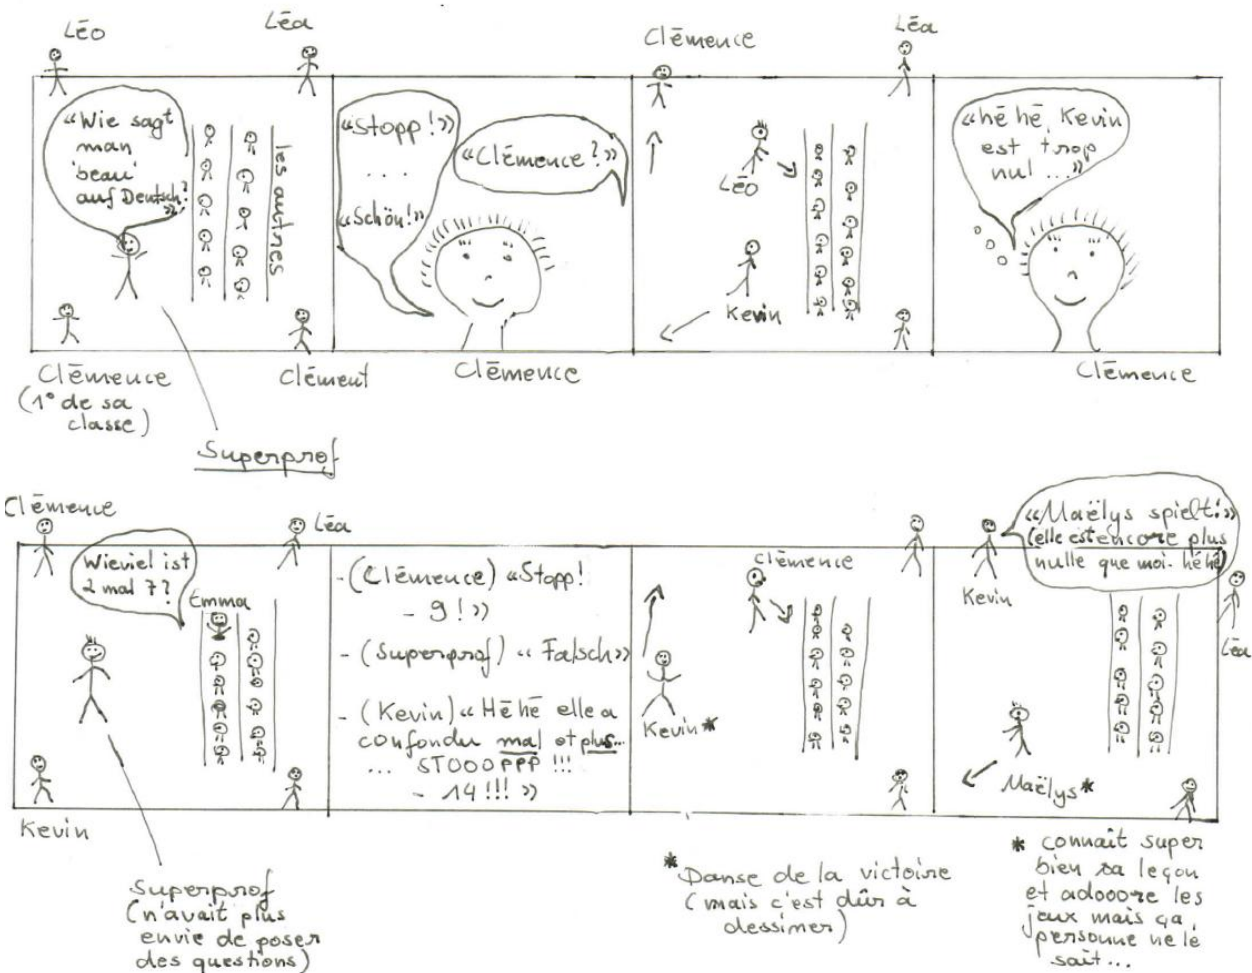 Léo
Léa
«Wie sagt
man
'beau'
auf Deutsch?
»
les autres
Clémence
(1° de sa
classe)
Clément
Superprof
«Stopp!»
....
«Schön!»
«Clémence?»
Clémence
Clémence
Léa
Léo
Kevin
«hé hé, Kevin
est trop
nul...»
Clémence
Clémence
Léa
Wieviel ist
2 mal 7?
Emma
Kevin
Superprof
(n'avait plus
envie de poser
des questions)
- (Clémence) «Stopp!
- 9!»
- (Superprof) «Falsch»
- (Kevin) «Hé hé elle a
confondu mal et plus...
... STOOOPPP!!!
- 14!!!»
Clémence
Kevin*
* Danse de la victoire
(mais c'est dûr à
dessiner)
«Maëlys spielt!»
(elle est encore plus
nulle que moi. hé hé)
Kevin
Léa
Maëlys*
* connaît super
bien sa leçon
et adooore les
jeux mais ça,
personne ne le
sait...